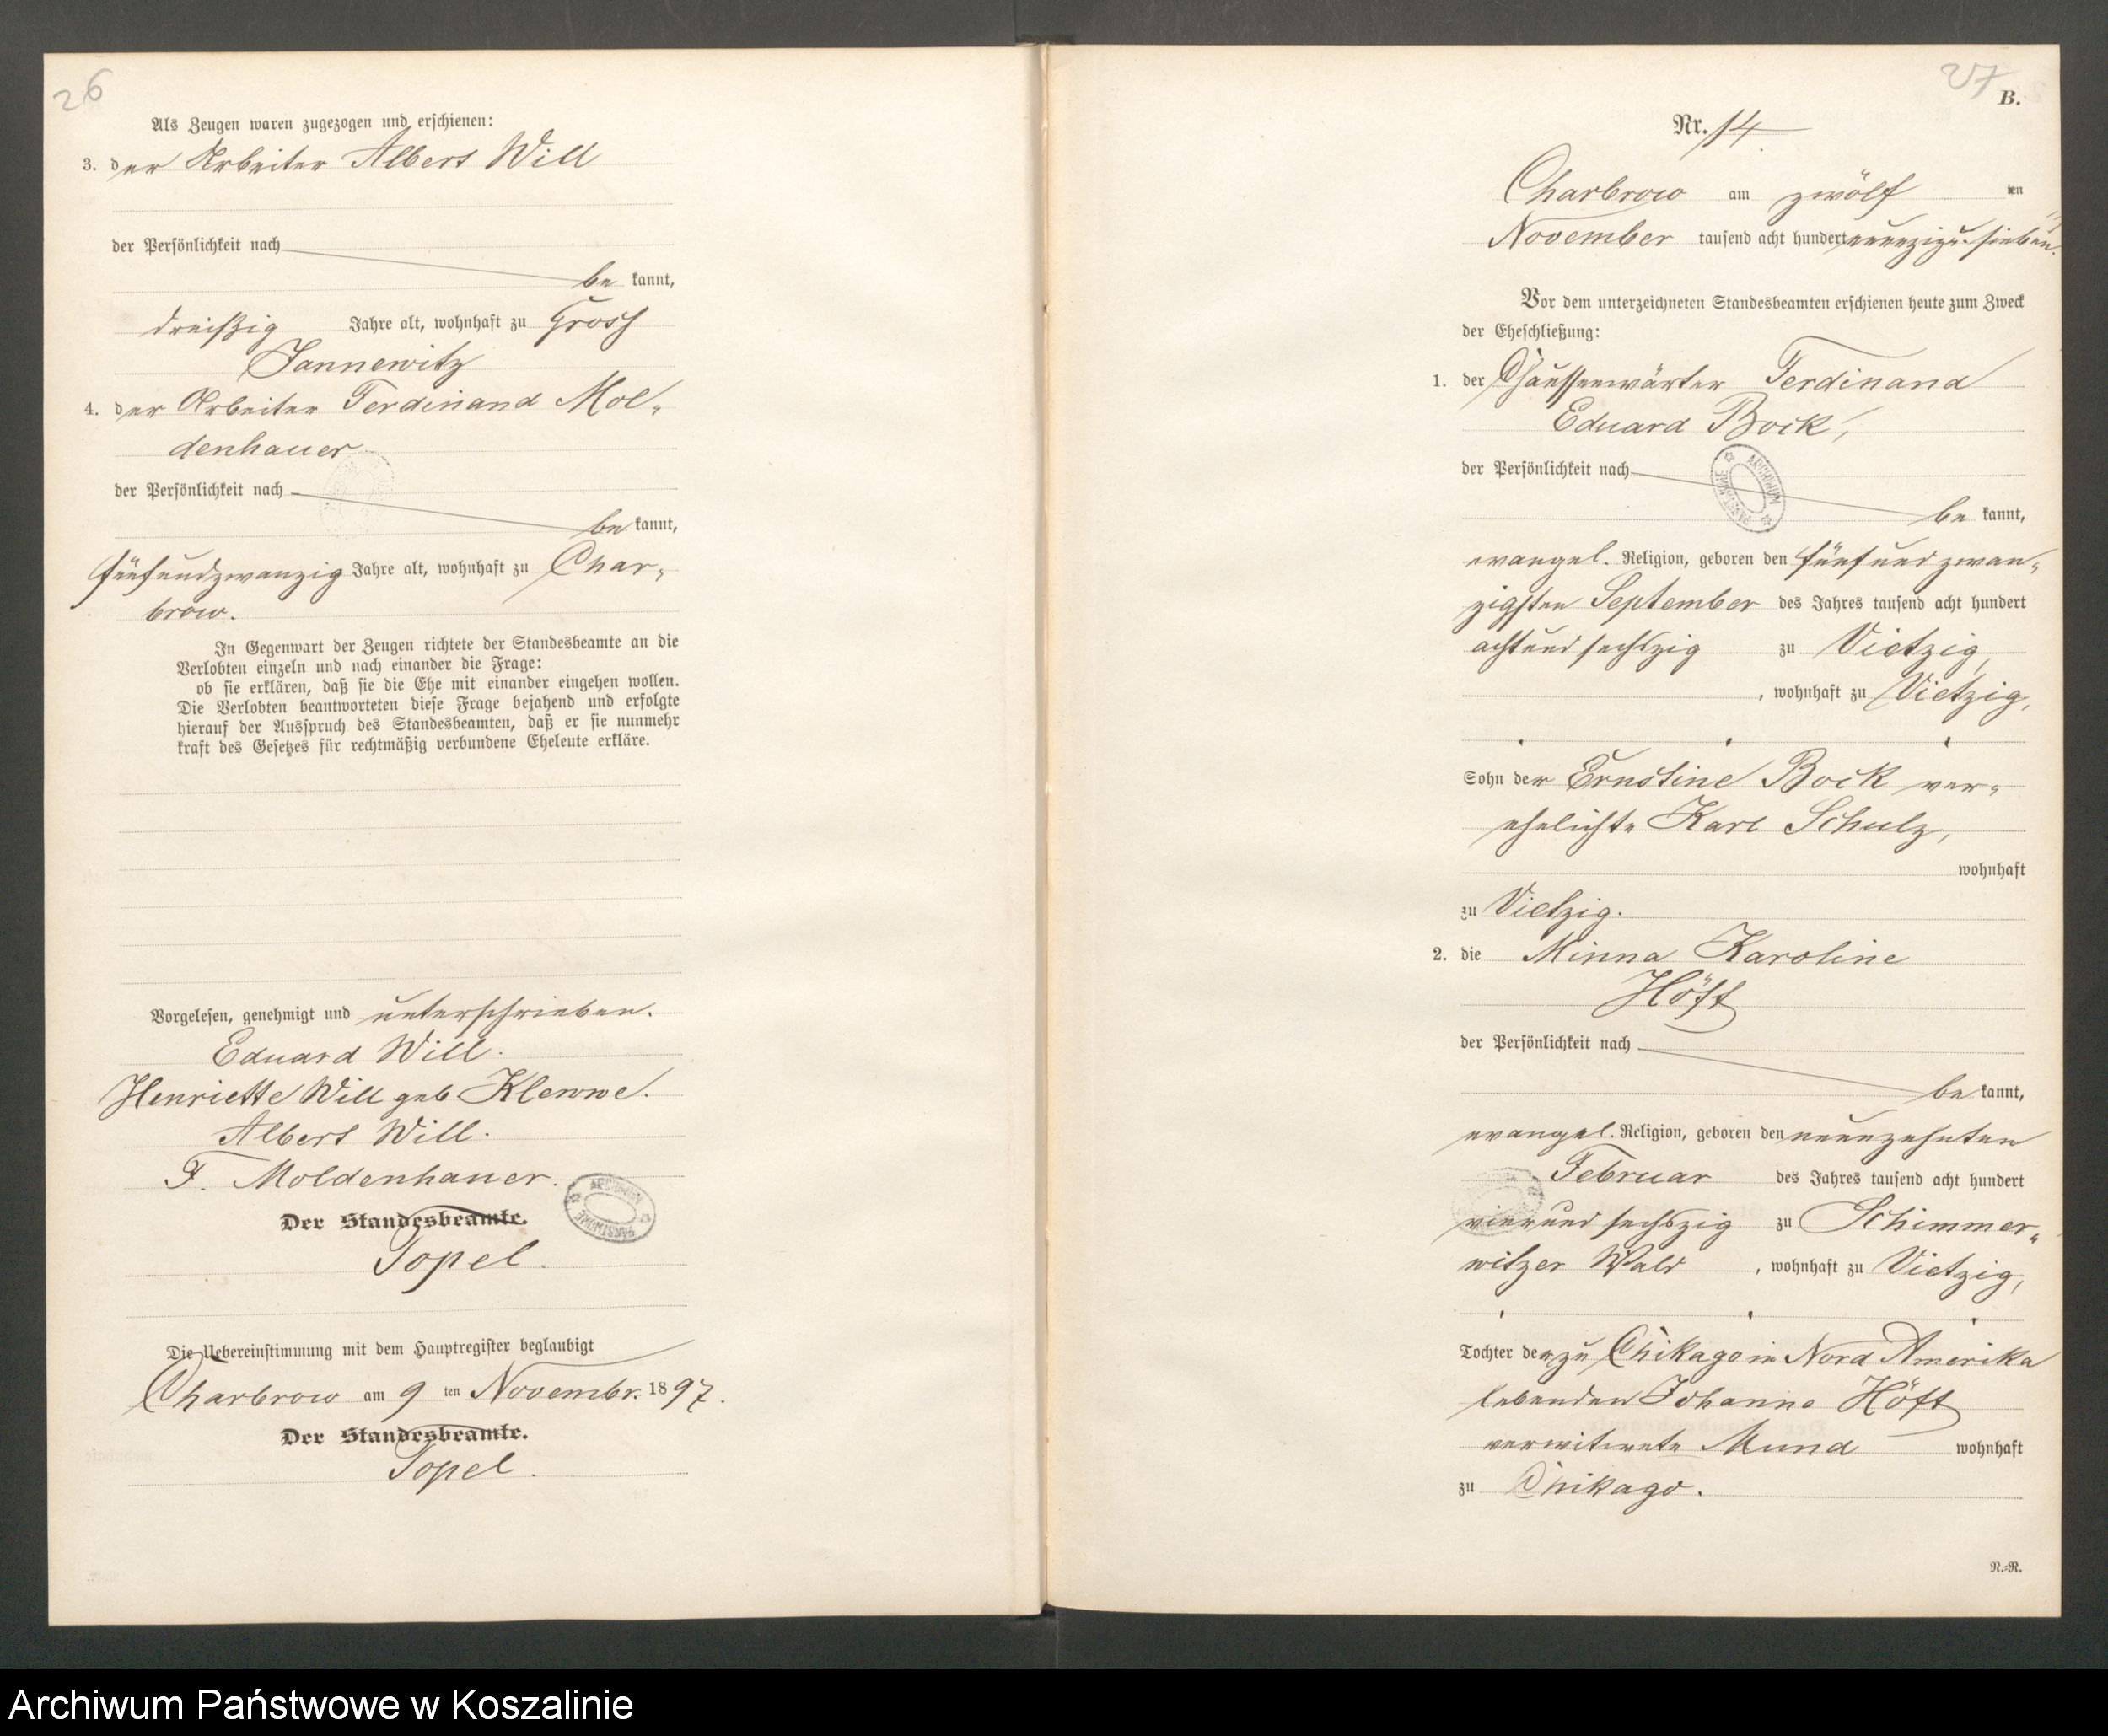 26
Als Zeugen waren zugezogen und erschienen:
3. der Arbeiter Albert Will
der Persönlichkeit nach
be kannt,
dreißig Jahre alt, wohnhaft zu Gross
Jannewitz
4. der Arbeiter Ferdinand Mol-
denhauer
der Persönlichkeit nach
be kannt,
fünfundzwanzig Jahre alt, wohnhaft zu Char-
brow.
In Gegenwart der Zeugen richtete der Standesbeamte an die
Verlobten einzeln und nach einander die Frage:
ob sie erklären, daß sie die Ehe mit einander eingehen wollen.
Die Verlobten beantworteten diese Frage bejahend und erfolgte
hierauf der Ausspruch des Standesbeamten, daß er sie nunmehr
kraft des Gesetzes für rechtmäßig verbundene Eheleute erkläre.
Vorgelesen, genehmigt und unterschrieben.
Eduard Will.
Henriette Will geb Klewwe.
Albert Will.
F. Moldenhauer.
Der Standesbeamte.
Topel.
Die Uebereinstimmung mit dem Hauptregister beglaubigt
Charbrow am 9 ten Novembr. 1897.
Der Standesbeamte.
Topel.
27
B.
Nr. 14.
Charbrow am zwölf ten
November tausend acht hundert neunzig u. sieben.
Vor dem unterzeichneten Standesbeamten erschienen heute zum Zweck
der Eheschließung:
1. der Chausseewärter Ferdinand
Eduard Bock,
der Persönlichkeit nach
ARCHIWUM PAŃSTWOWE
be kannt,
evangel. Religion, geboren den fünfundzwan-
zigsten September des Jahres tausend acht hundert
achtundsechszig zu Vietzig,
, wohnhaft zu Vietzig,
Sohn der Ernstine Bock ver-
ehelichte Karl Schulz,
wohnhaft
zu Vietzig.
2. die Minna Karoline
Höft
der Persönlichkeit nach
be kannt,
evangel. Religion, geboren den neunzehnten
Februar des Jahres tausend acht hundert
vierundsechszig zu Schimmer-
witzer Wald , wohnhaft zu Vietzig,
Tochter der zu Chikago in Nord Amerika
lebenden Johanne Höft
verwitwete Mund wohnhaft
zu Chikago.
N.=R.
Archiwum Państwowe w Koszalinie